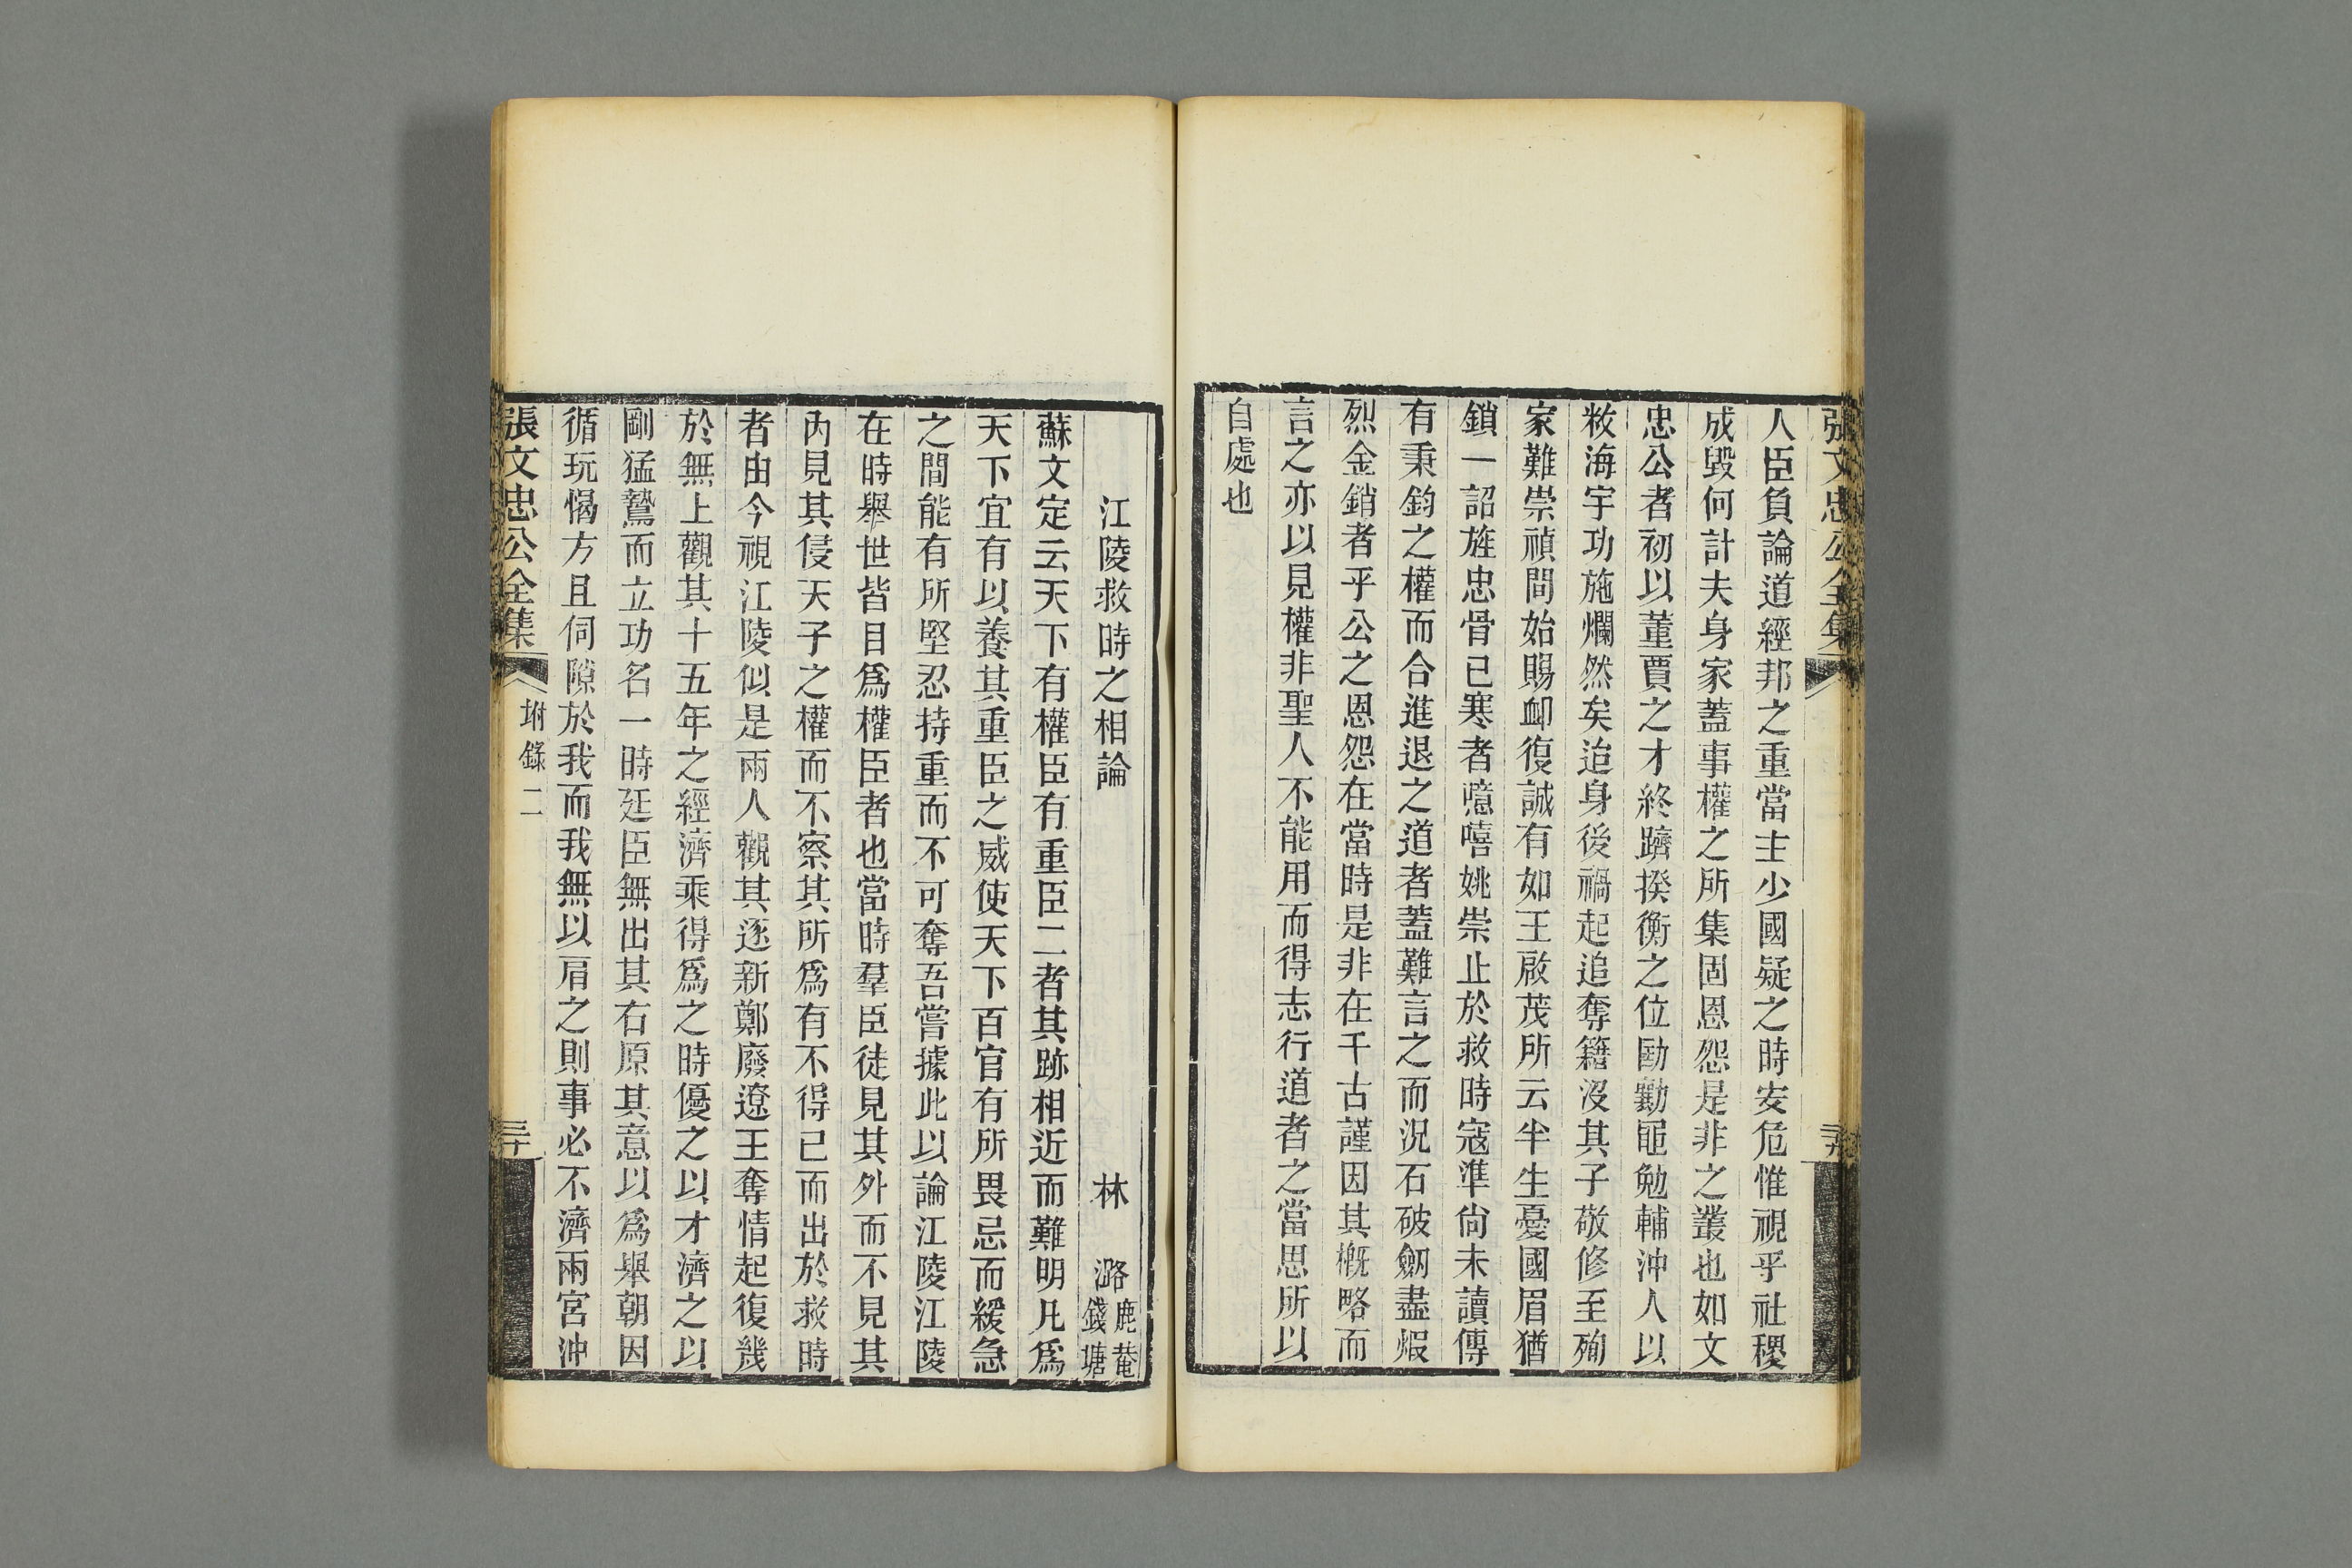 張文忠公全集
人臣負論道經邦之重當主少國疑之時安危惟視乎社稷
成毀何計夫身家蓋事權之所集固恩怨是非之叢也如文
忠公者初以董賈之才終躋揆衡之位勖勷黽勉輔沖人以
敉海宇功施爛然矣迨身後禍起追奪籍沒其子敬修至殉
家難崇禎間始賜卹復誠有如王啟茂所云半生憂國眉猶
鎖一詔旌忠骨已寒者噫嘻姚崇止於救時寇準尚未讀傳
有秉鈞之權而合進退之道者蓋難言之而況石破劒盡煆
烈金銷者乎公之恩怨在當時是非在千古謹因其概略而
言之亦以見權非聖人不能用而得志行道者之當思所以
自處也
江陵救時之相論
林潞鹿菴錢塘
蘇文定云天下有權臣有重臣二者其跡相近而難明凡爲
天下宜有以養其重臣之威使天下百官有所畏忌而緩急
之間能有所堅忍持重而不可奪吾嘗據此以論江陵江陵
在時舉世皆目爲權臣者也當時羣臣徒見其外而不見其
內見其侵天子之權而不察其所爲有不得已而出於救時
者由今視江陵似是兩人觀其逐新鄭廢遼王奪情起復幾
於無上觀其十五年之經濟乘得爲之時優之以才濟之以
剛猛鷙而立功名一時廷臣無出其右原其意以爲舉朝因
循玩愒方且伺隙於我而我無以肩之則事必不濟兩宮沖
張文忠公全集
坿錄二
三十